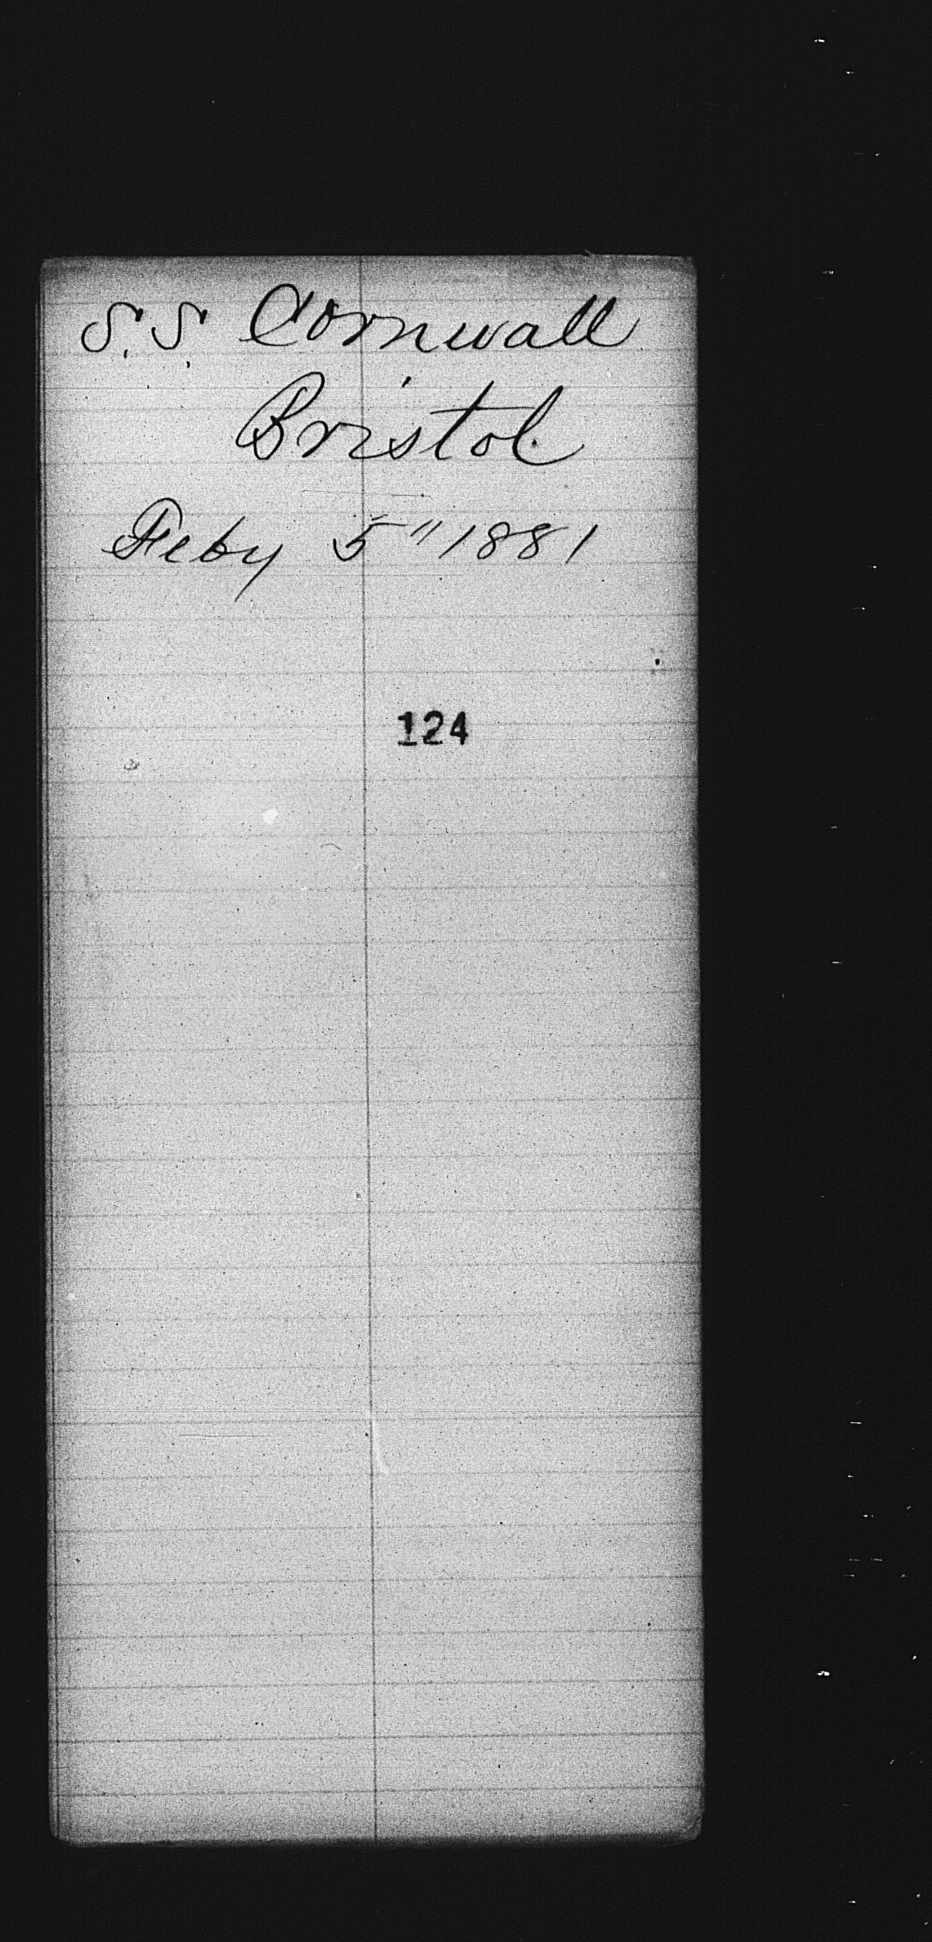 S.S. Cornwall
Bristol
Feby 5" 1881
124